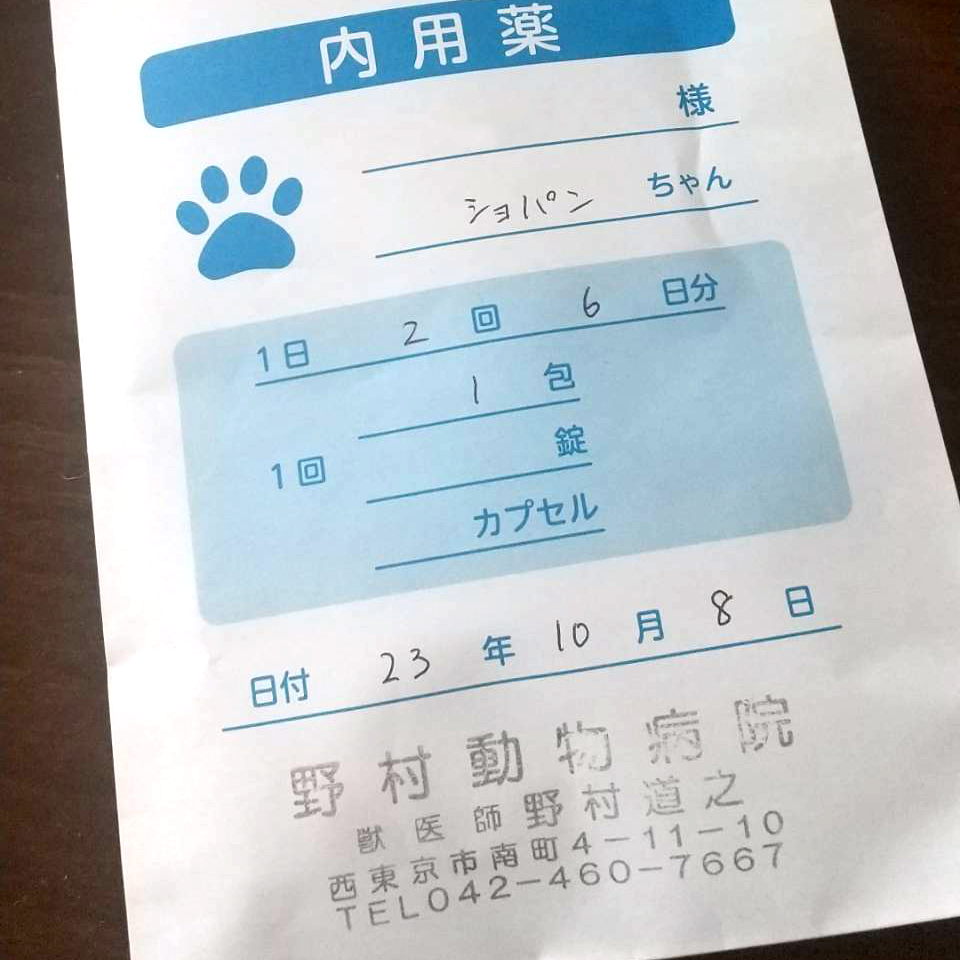 内用薬
様
ショパン ちゃん
1日 2 回 6 日分
1 包
1回 錠
カプセル
日付 23 年 10 月 8 日
野村動物病院
獣医師 野村道之
西東京市南町4-11-10
TEL042-460-7667